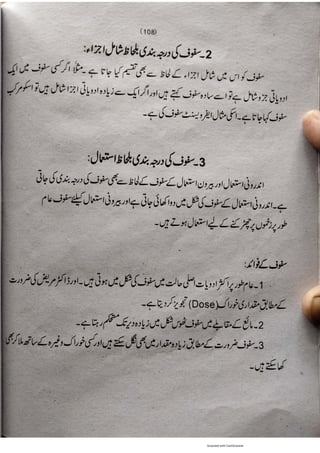 (108)
2۔سفوف کی درجہ بندی بلحاظ شامل اجزاء:
سفوف کو اس میں شامل اجزاء کے لحاظ سے بھی تقسیم کیا جاتا ہے ۔مثلاً اگر کسی سفوف میں ایک
ادویاتی جزو شامل ہے تو اسے سادہ سفوف کہتے ہیں اور اگر ایک سے زیادہ ادویاتی اجزا شامل ہیں تو اسکو مرکب
سفوف کہا جاتا ہے۔ اسکی مثال ایفرویسنٹ سفوف کی ہے۔
3۔سفوف کی درجہ بندی بلحاظ استعمال:
اندرونی استعمال اور بیرون استعمال کے سفوف کے لحاظ سے بھی سفوف کی درجہ بندی کی جاتی
ہے۔ اندرونی استعمال کے سفوف کی شکل میں دوا کھائی جاتی ہے اور بیرونی استعمال کیلئے سفوف عام
طور پر زخموں پر چھڑکنے کے لیے استعمال ہوتے ہیں۔
سفوف کے فوائد:
1۔عام طور پر اکثر ادویات اصلی حالت میں سفوف کی شکل میں ہوتی ہیں۔ اور ڈاکٹر مریض کی ضرورت
کے مطابق مقداری خوراک (Dose) تجویز کر دیتا ہے۔
2۔مائع کے مقابلے میں سفوف ٹھوس شکل میں زیادہ دیر تک مستحکم رہتا ہے۔
3۔سفوف ضرورت کے مطابق زیادہ مقدار میں بھی نگل سکتے ہیں اور کسی خوراک وغیرہ کے ساتھ ملا کر بھی
کھا سکتے ہیں۔
Scanned with CamScanner